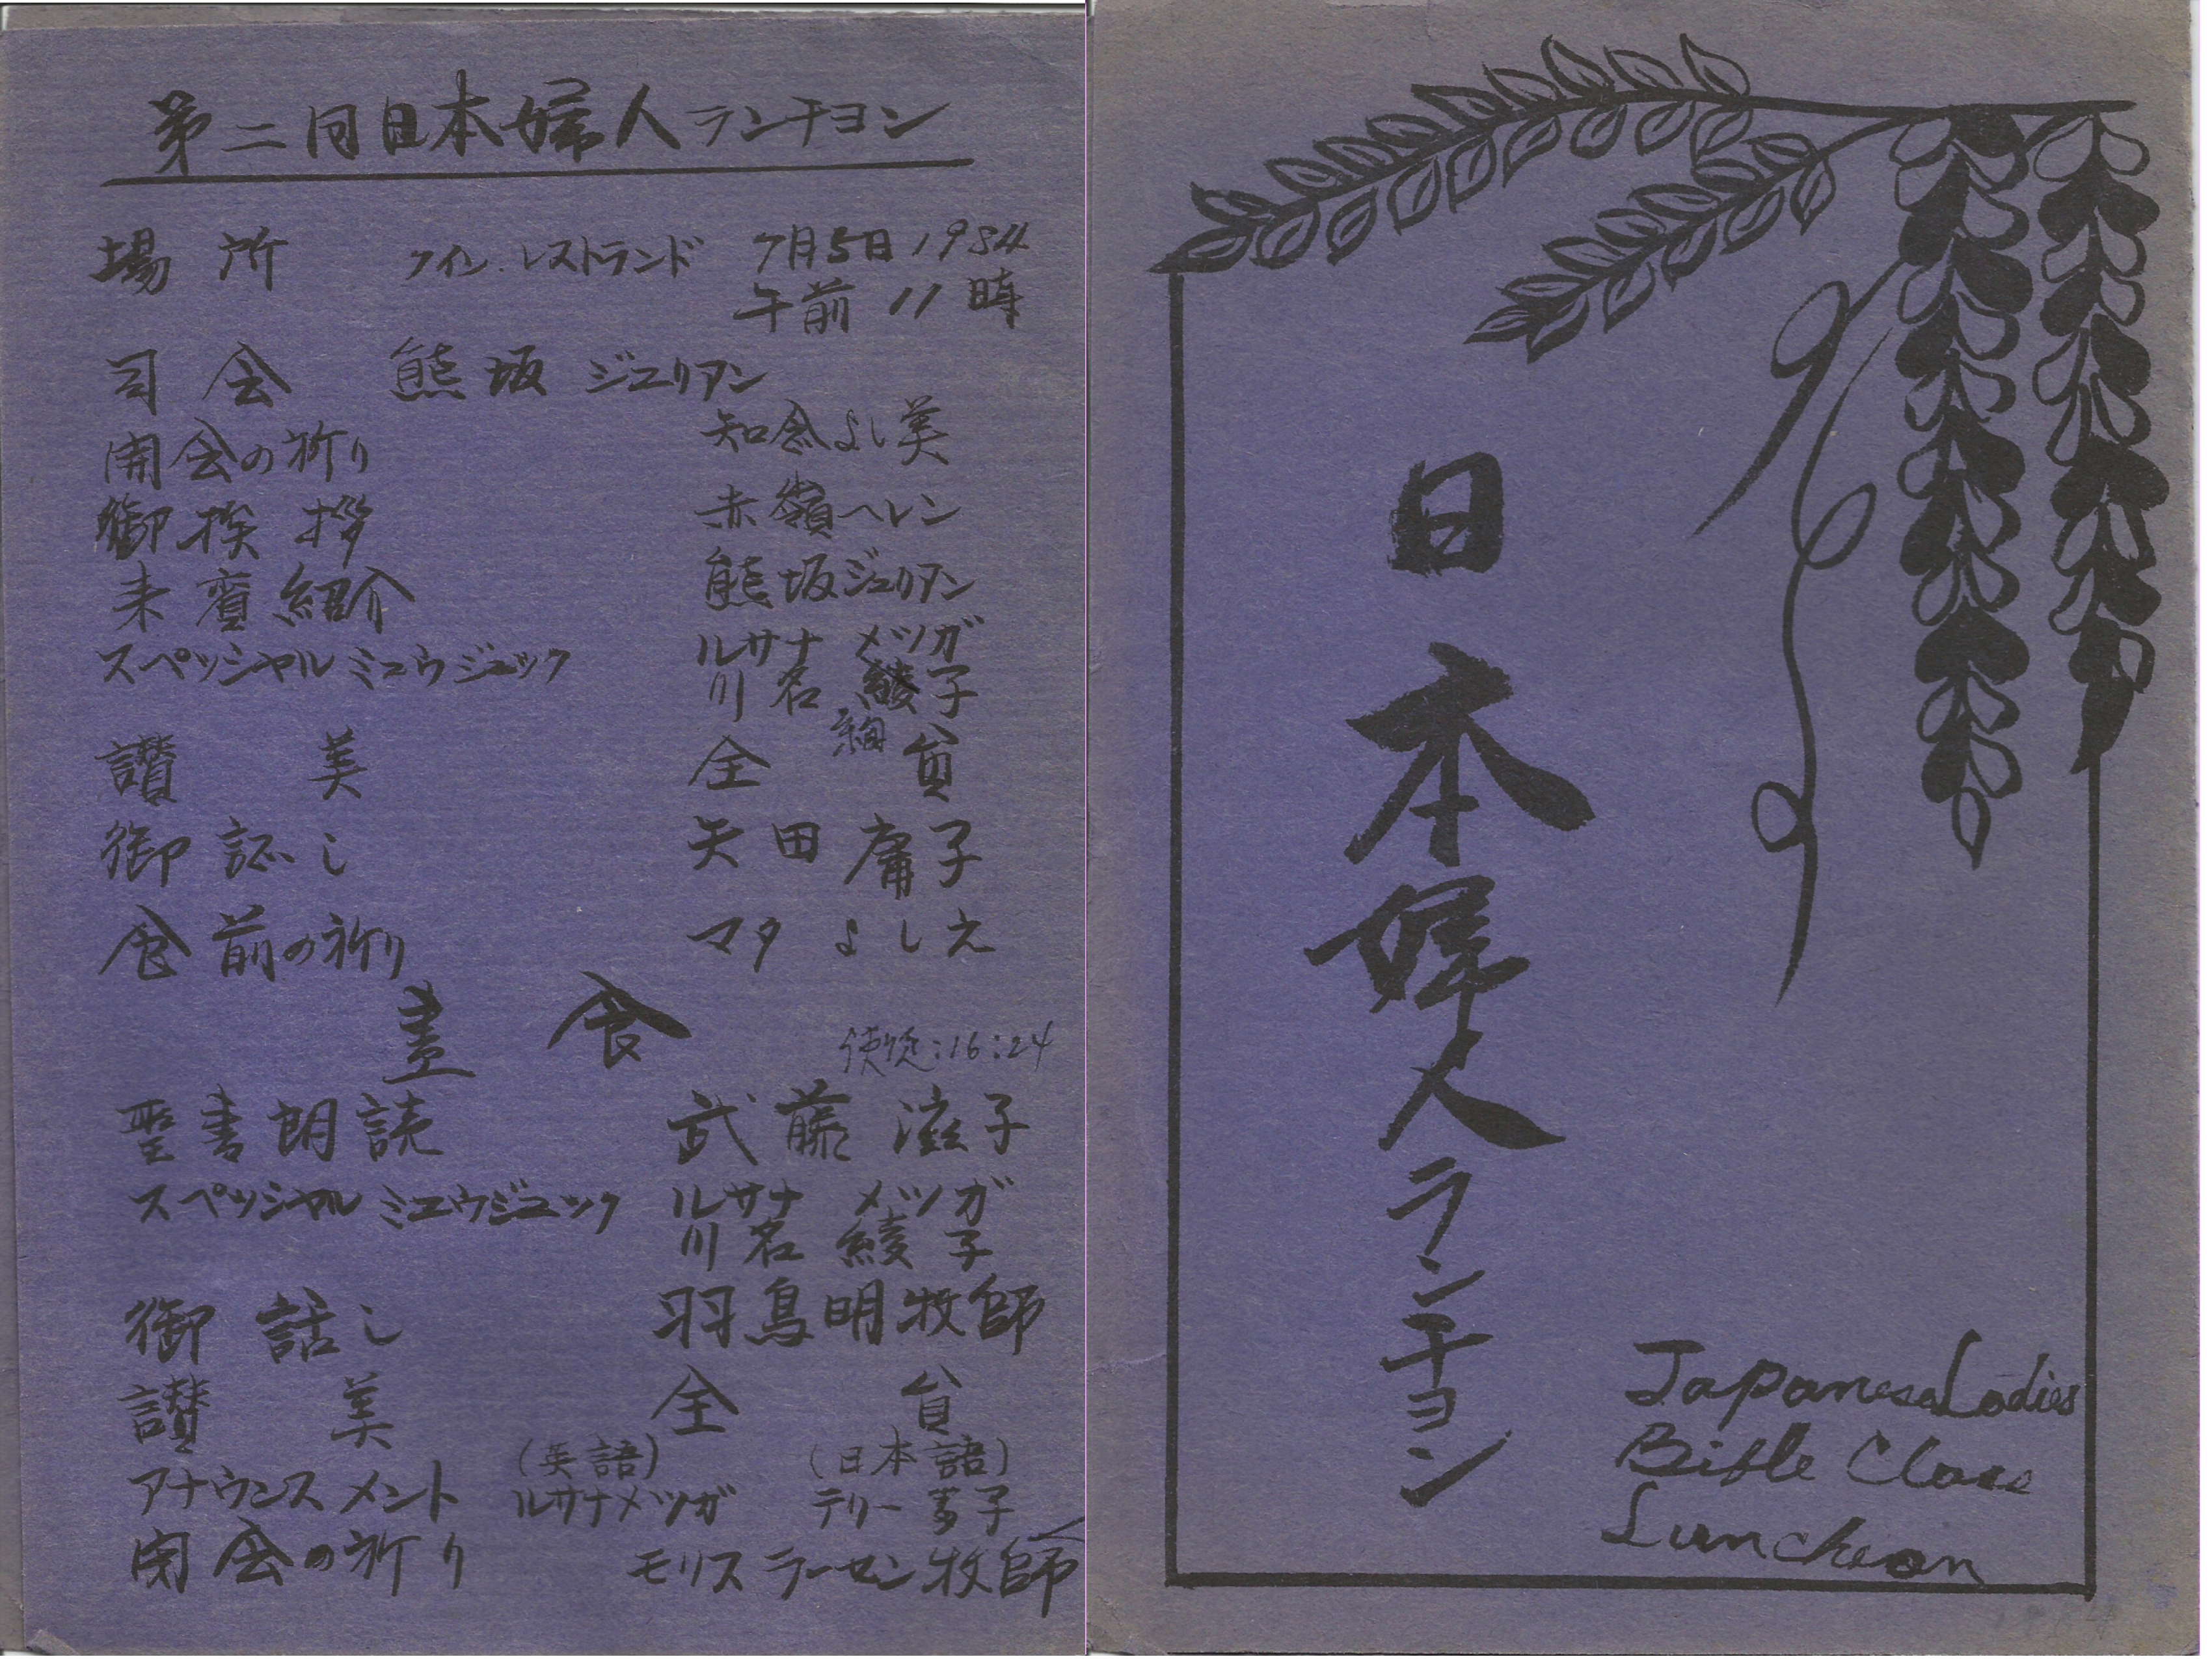 第二回日本婦人ランチヨン
場所 クイン.レストランド 7月5日1984
午前11時
司会 熊坂ジユリアン
開会の祈り 知念よし美
御挨拶 赤嶺ヘレン
来賓紹介 熊坂ジユリアン
スペッシャルミユウジュック ルサナ メツガ
川名綾子
讃美 全員
御証し 矢田庸子
食前の祈り マタよしえ
昼食
使徒:16:24
聖書朗読 武藤滋子
スペッシャルミユウジユック ルサナ メツガ
川名綾子
御話し 羽鳥明牧師
讃美 全員
(英語) (日本語)
アナウンスメント ルサナメツガ テリー 子
閉会の祈り モリスラーセン牧師
日本婦人ランチヨン
Japanese Ladies
Bible Class
Luncheon